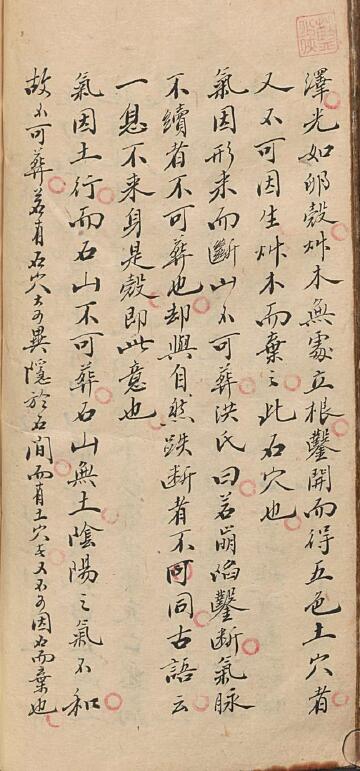 澤光如卵殼艸木無處立根鑿開而得五色土穴者
又不可因生艸木而棄之此石穴也
氣因形来而斷山不可葬洪氏曰若崩陷鑿断氣脉
不續者不可葬也却與自然跌断者不同古語云
一息不来身是殼即此意也
氣因土行而石山不可葬石山無土陰陽之氣不和
故不可葬若有石穴大可異隱於石间而有土穴者又不可因石而棄也